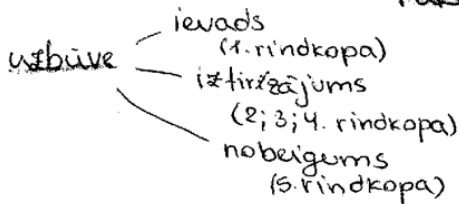 ievads
(1. rindkopa)
uzbūve
iztirzājums
(2; 3; 4. rindkopa)
nobeigums
(5. rindkopa)